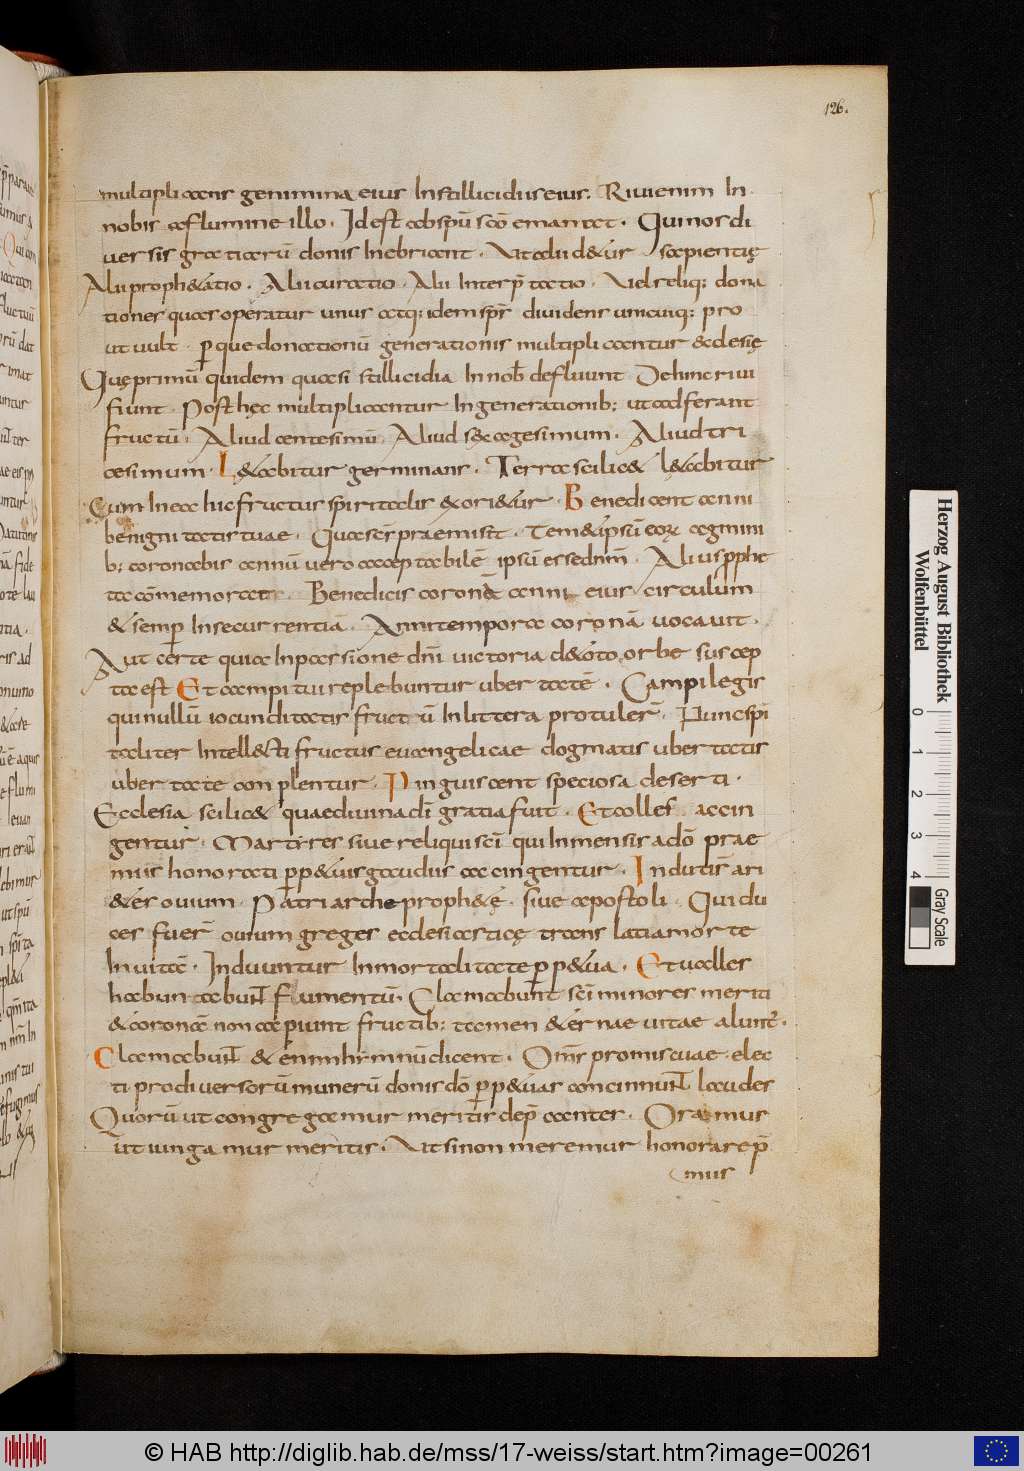 126.
multiplicans genimina eius In stillicidiis eius. Riui enim In
nobis a flumine illo. Id est ab spū scō emanat. Qui nos di
uersis gratiarū donis Inebriant. Ut aliud &ur sapientię
Alii proph&atio. Alii curatio. Alii Interp̄tatio. Uel reliq; dona
tiones quas operatur unus atq; idem sps̄ diuidens unicuiq; pro
ut uult p que donationū generationis multiplicantur ecclesię
Quę primū quidem quasi stillicidia In nob̄ defluunt Dehinc riui
fiunt. Post hęc multiplicantur In generationib; ut adferant
fructū. Aliud centesimū Aliud sexagesimum. Aliud tri
cesimum. L&abitur germinans. Terra scilic& l&abitur
Cum In ea hic fructus spiritalis & ori&ur. Benedic anni
benigni tatis tuae. Quas er praemist. Tem& ipsū eorum agmini
b; coronabis annū uero acceptabilē ipsū esse dn̄m. Alius pphe
ta cōmemorat. Benedicis coronā anni eius circulum
& semp In se currentiā. Anni tempora coronā uocauit.
Aut certe quia In passione dn̄i uictoria de toto orbe suscep
ta est Et campi tui replebuntur ubertatē. Campi legis
qui nullū iocunditatis fructū In littera protulerū. Nunc spi
taliter Intellecti fructus euangelicae dogmatis ubertatis
ubertate conplentur. Pinguiscent speciosa deserti.
Ecclesia scilic& quae diuina dī gratia fuit. Et colles accin
gentur. Martires siue reliqui scī qui Inmensis a dō prae
miis honorati pp&uis gaudiis accingentur. Induti sr ari
&es ouium. Patriarche proph&ę. siue apostoli. Qui du
ces fuer̄ ouium greges ecclesiasticę trans latia morte
In uitā. Induuntur Inmortalitate pp&ua. Et ualles
habundabunt frumentū. Clamabunt scī minores meriti
& corona non accipiunt fructib; tamen &ernae uitae alunt̄.
Clamabunt & enim hȳmnū dicent. Om̄s promiscuae elec
ti pro diuersorū munerū donis dō pp&uas concinnunt laudes
Quorū ut congregamur meritis dep̄canter. Oramus
ut iungamur meritis. Ut si non meremur honorare p̄
mus
Herzog August Bibliothek
Wolfenbüttel
0 1 2 3 4
Gray Scale
© HAB http://diglib.hab.de/mss/17-weiss/start.htm?image=00261